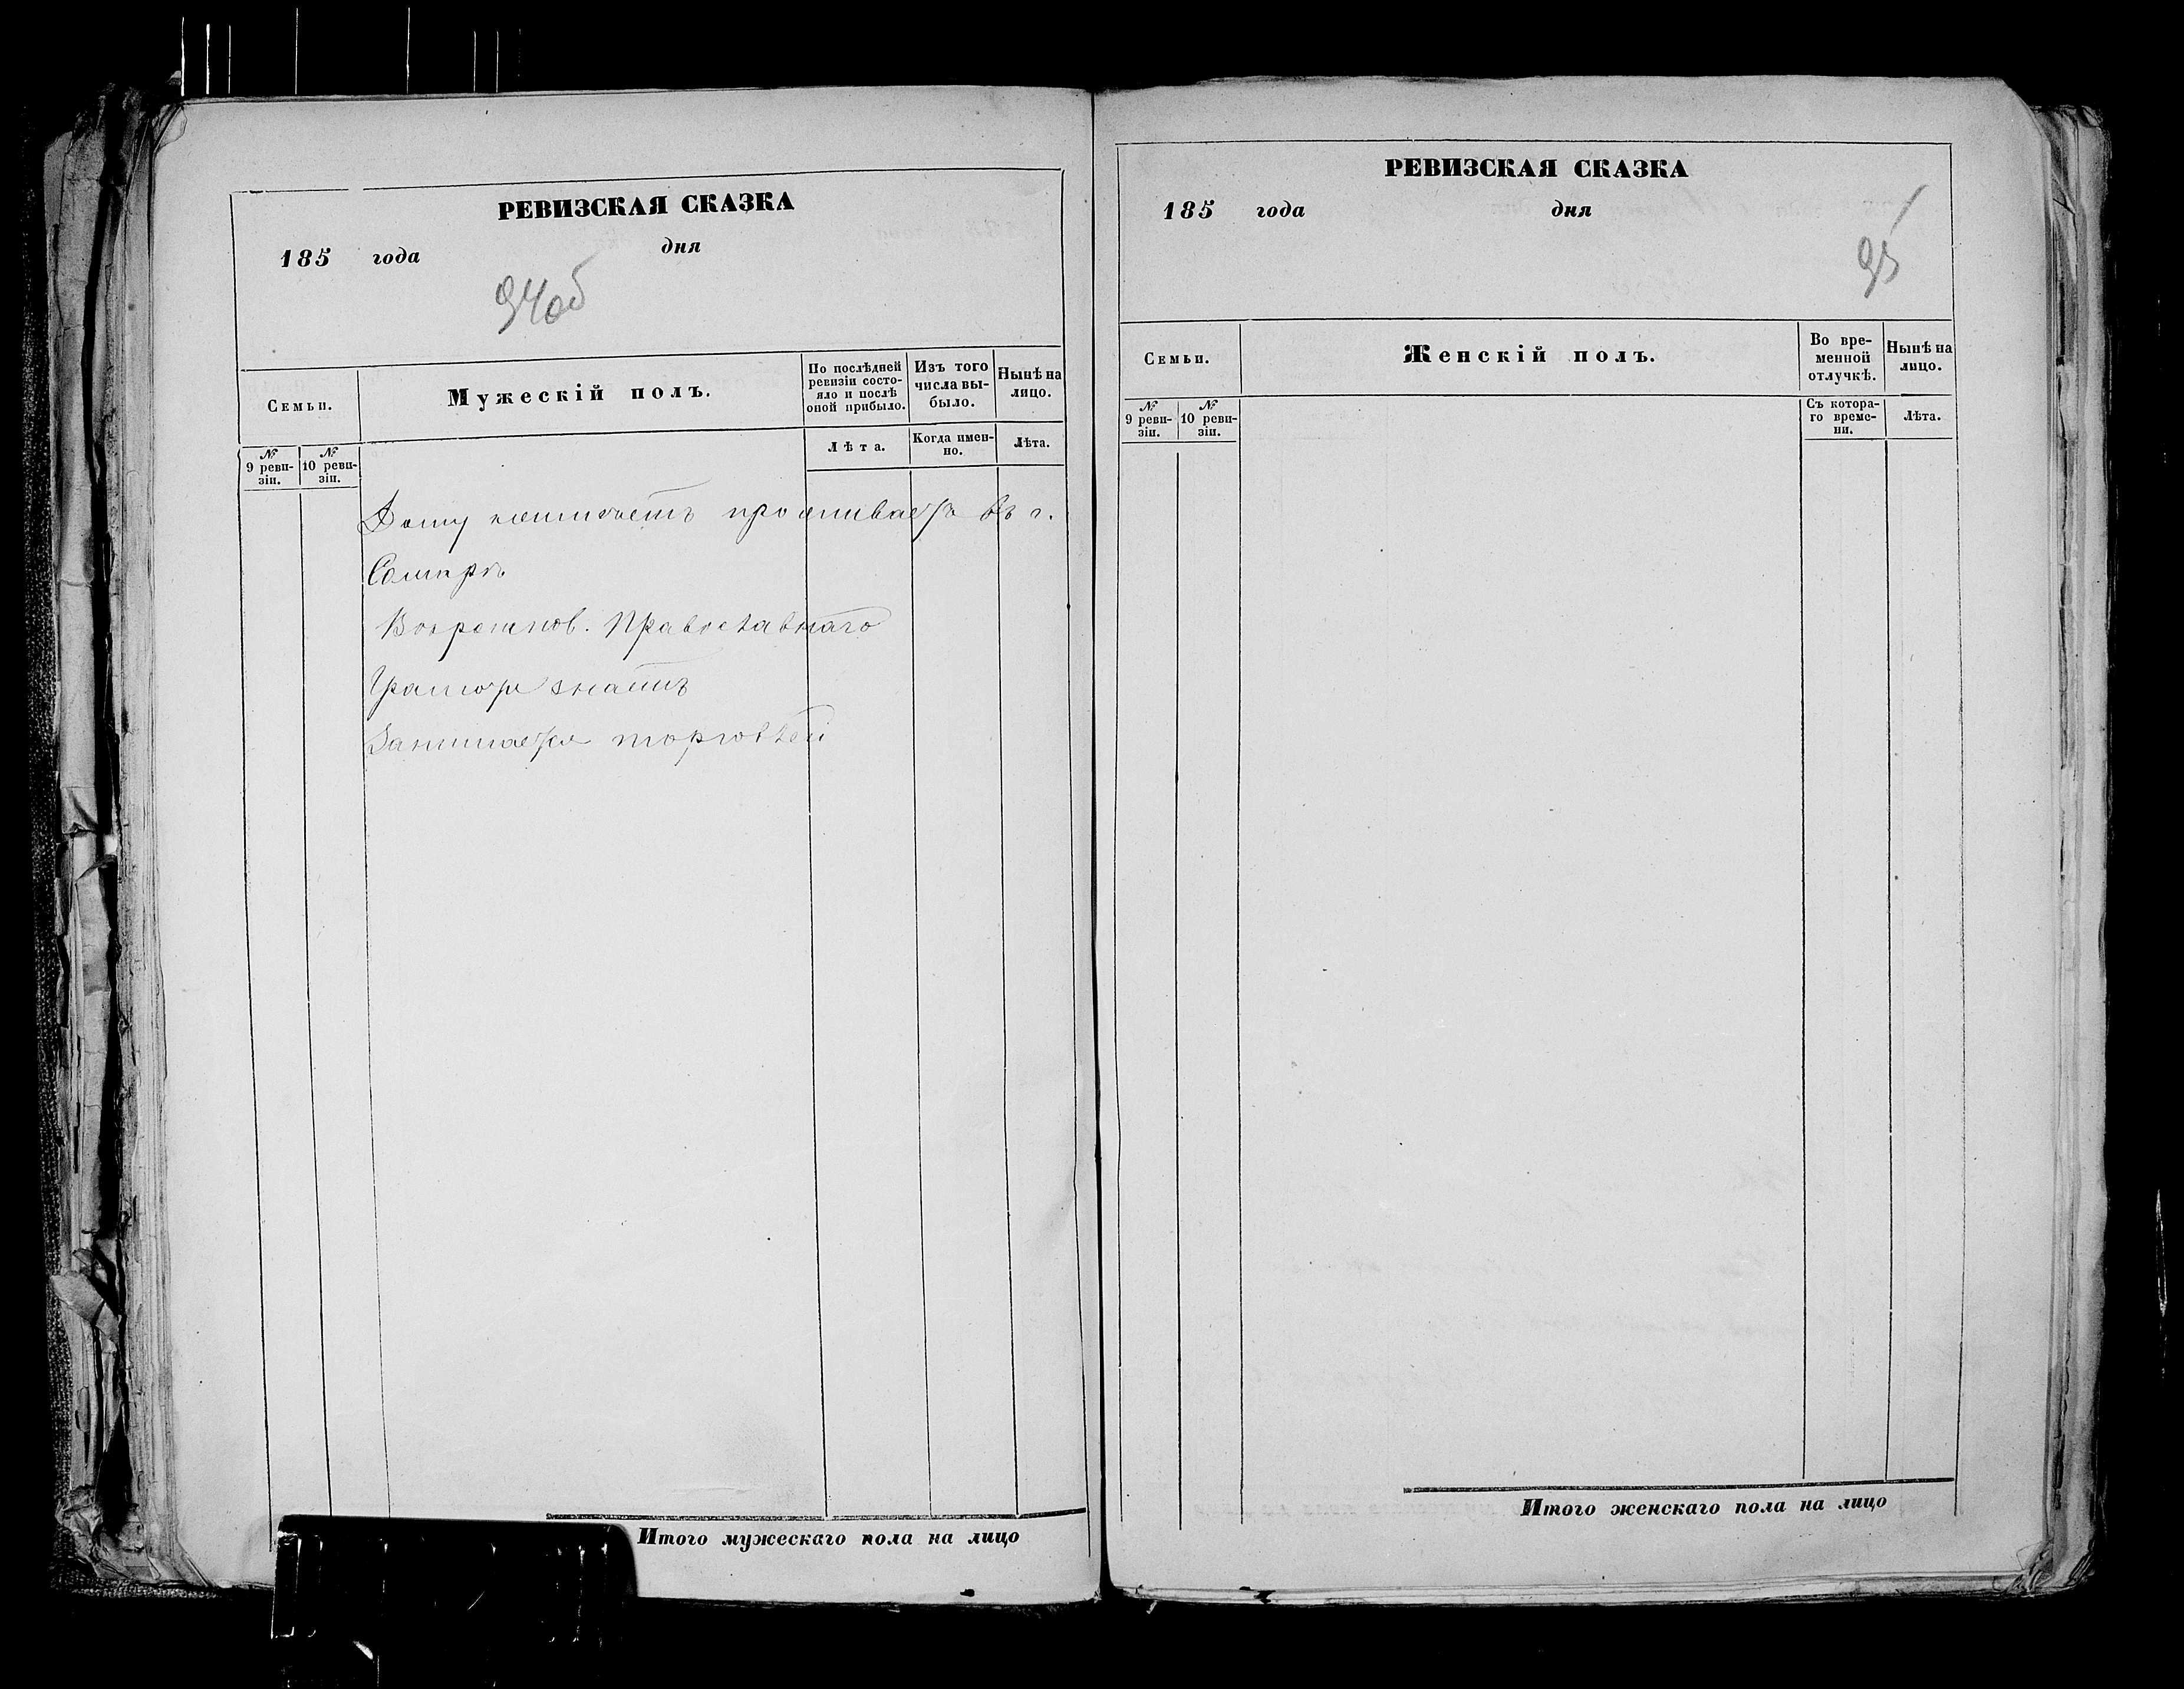 РЕВИЗСКАЯ СКАЗКА
185 года дня
94об
Семьи.
Мужескій полъ.
По послѣдней ревизіи состояло и послѣ оной прибыло.
Изъ того числа выбыло.
Нынѣ на лицо.
№ 9 ревизіи.
№ 10 ревизіи.
Лѣта.
Когда именно.
Лѣта.
Дому неимѣетъ проживаетъ въ г.
Самарѣ
Вѣроисповѣд. Православнаго
Грамотѣ знаетъ
Занимается торговлей
Итого мужескаго пола на лицо
РЕВИЗСКАЯ СКАЗКА
185 года дня
95
Семьи.
Женскій полъ.
Во временной отлучкѣ.
Нынѣ на лицо.
№ 9 ревизіи.
№ 10 ревизіи.
Съ котораго времени.
Лѣта.
Итого женскаго пола на лицо